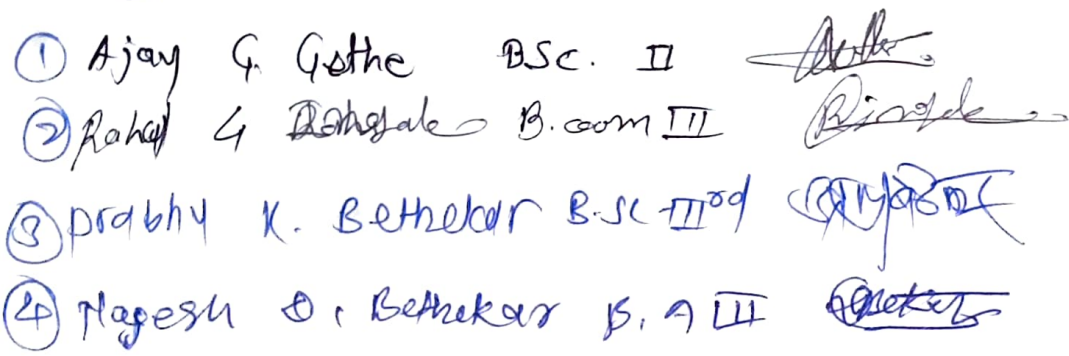 ① Ajay G. Gothe BSc. II
② Rahul G B.com III
③ prabhu K. Bethekar B.sc IIIrd
④ Nagesh D. Bethekar B. A III